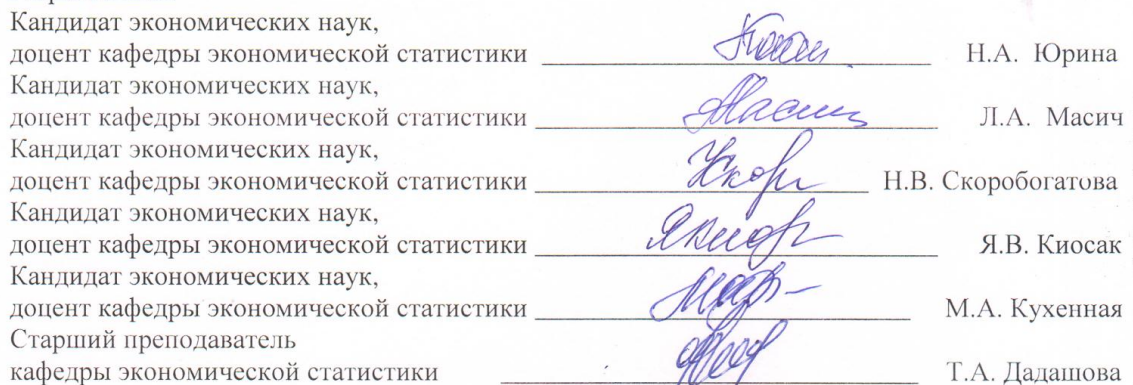 Кандидат экономических наук,
доцент кафедры экономической статистики Н.А. Юрина
Кандидат экономических наук,
доцент кафедры экономической статистики Л.А. Масич
Кандидат экономических наук,
доцент кафедры экономической статистики Н.В. Скоробогатова
Кандидат экономических наук,
доцент кафедры экономической статистики Я.В. Киосак
Кандидат экономических наук,
доцент кафедры экономической статистики М.А. Кухенная
Старший преподаватель
кафедры экономической статистики Т.А. Дадашова